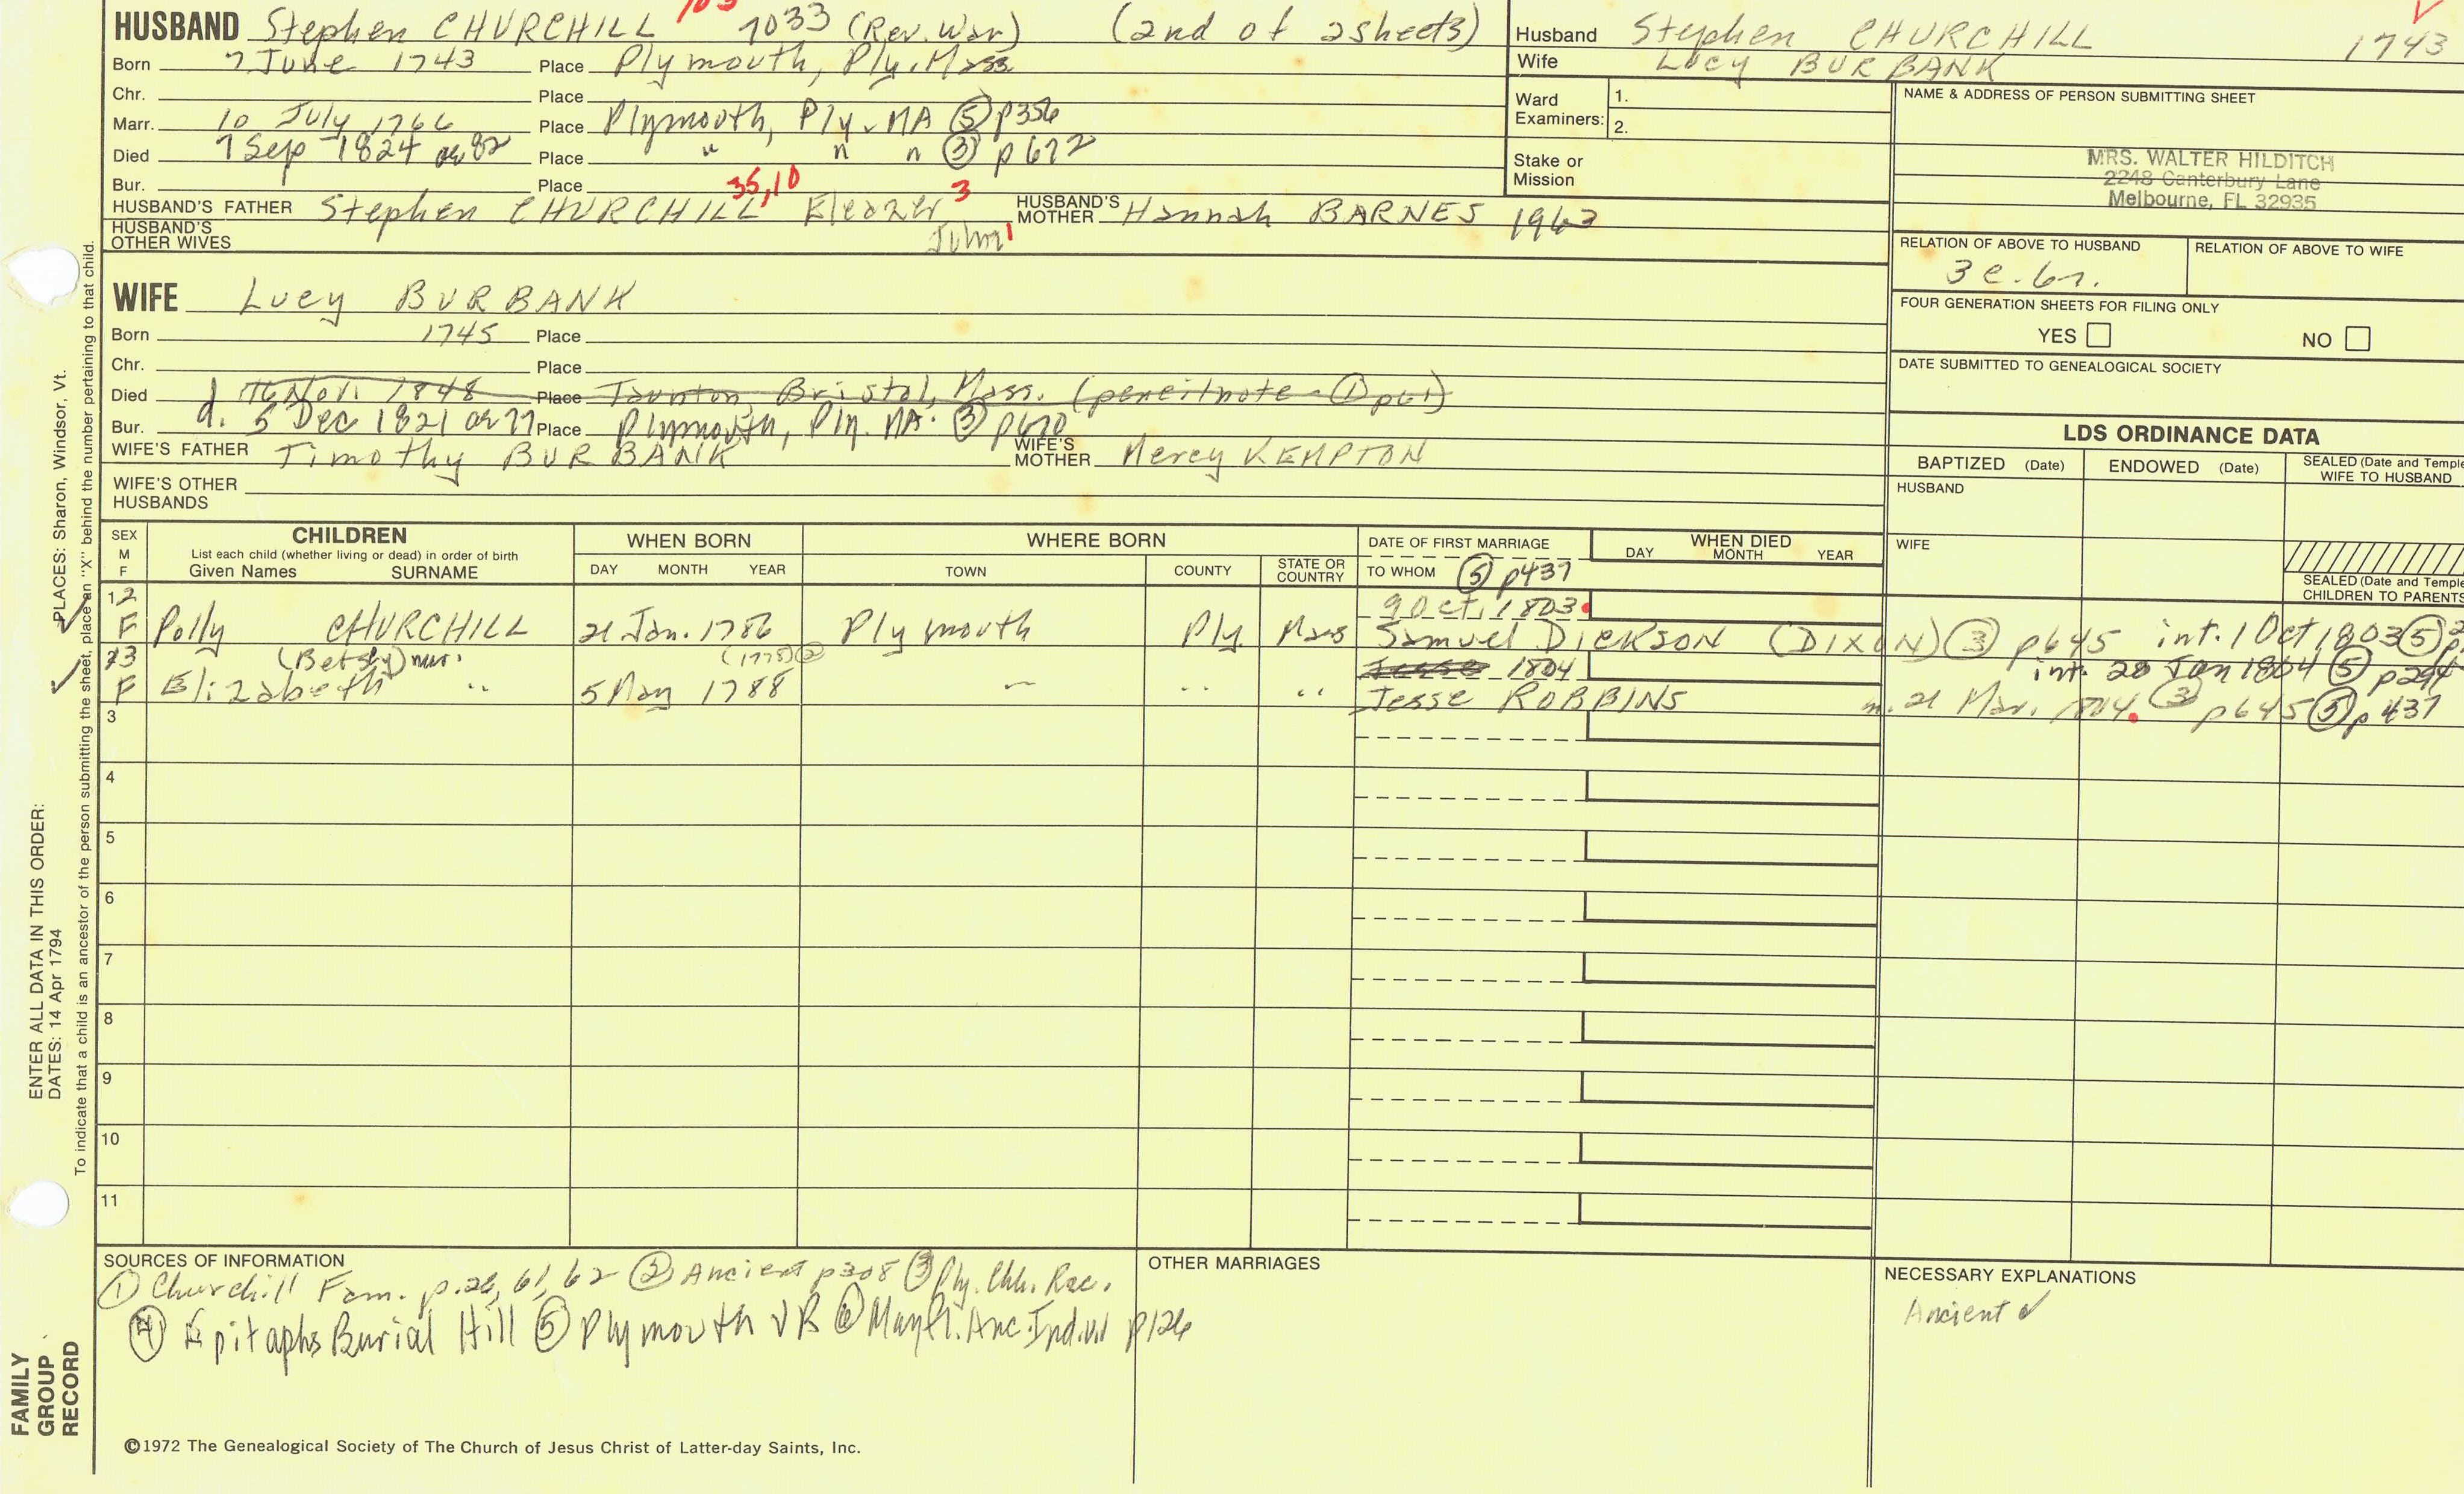 HUSBAND Stephen CHURCHILL 1033 (Rev. War) (2nd of 2 sheets)
Born 7 June 1743 Place Plymouth, Ply. Mass
Chr. Place
Marr. 10 July 1766 Place Plymouth, Ply. MA ⑤ p356
Died 7 Sep 1824 ae 82 Place " " " ③ p672
Bur. Place
35,10 3
HUSBAND'S FATHER Stephen CHURCHILL, Eleazer HUSBAND'S MOTHER Hannah BARNES 1963
HUSBAND'S OTHER WIVES John 1
Husband Stephen CHURCHILL 1743
Wife Lucy BURBANK
Ward Examiners: 1.
2.
Stake or Mission
NAME & ADDRESS OF PERSON SUBMITTING SHEET
MRS. WALTER HILDITCH
2248 Canterbury Lane
Melbourne, FL 32935
RELATION OF ABOVE TO HUSBAND RELATION OF ABOVE TO WIFE
FOUR GENERATION SHEETS FOR FILING ONLY
YES NO
DATE SUBMITTED TO GENEALOGICAL SOCIETY
WIFE Lucy BURBANK
Born 1745 Place
Chr. Place
Died d. 16 Nov. 1848 Place Taunton, Bristol, Mass. (pencil note - ① p61)
d. 5 Dec 1821 ae 77 Plymouth, Ply. MA. ③ p670
Bur. Place
WIFE'S FATHER Timothy BURBANK WIFE'S MOTHER Mercy KEMPTON
WIFE'S OTHER HUSBANDS
LDS ORDINANCE DATA
BAPTIZED (Date) ENDOWED (Date) SEALED (Date and Temple
WIFE TO HUSBAND
HUSBAND
WIFE
SEALED (Date and Temple
CHILDREN TO PARENTS
SEX M F
CHILDREN
List each child (whether living or dead) in order of birth
Given Names SURNAME
WHEN BORN
DAY MONTH YEAR
WHERE BORN
TOWN COUNTY STATE OR COUNTRY
DATE OF FIRST MARRIAGE
TO WHOM ⑤ p437
WHEN DIED
DAY MONTH YEAR
12 9 Oct. 1803
F Polly CHURCHILL 21 Jan. 1786 Plymouth Ply Mass Samuel DICKSON (DIXON) ③ p645 int. 1 Oct 1803 ⑤
13 (Betsy) (1775) ② 1804 int. 28 Jan 1804 ⑤ p294
F Elizabeth " 5 May 1788 " " " Jesse ROBBINS m. 21 Mar. 1804. ③ p645 ⑤ p437
3
4
5
6
7
8
9
10
11
SOURCES OF INFORMATION
① Churchill Fam. p.26, 61, 62 ② Ancient p308 ③ Ply. Chh. Rec.
④ Epitaphs Burial Hill ⑤ Plymouth VR ⑥ Mayfl. Anc. Ind. p126
OTHER MARRIAGES
NECESSARY EXPLANATIONS
Ancient ✓
©1972 The Genealogical Society of The Church of Jesus Christ of Latter-day Saints, Inc.
FAMILY GROUP RECORD
ENTER ALL DATA IN THIS ORDER:
DATES: 14 Apr 1794
PLACES: Sharon, Windsor, Vt.
To indicate that a child is an ancestor of the person submitting the sheet, place an "X" behind the number pertaining to that child.